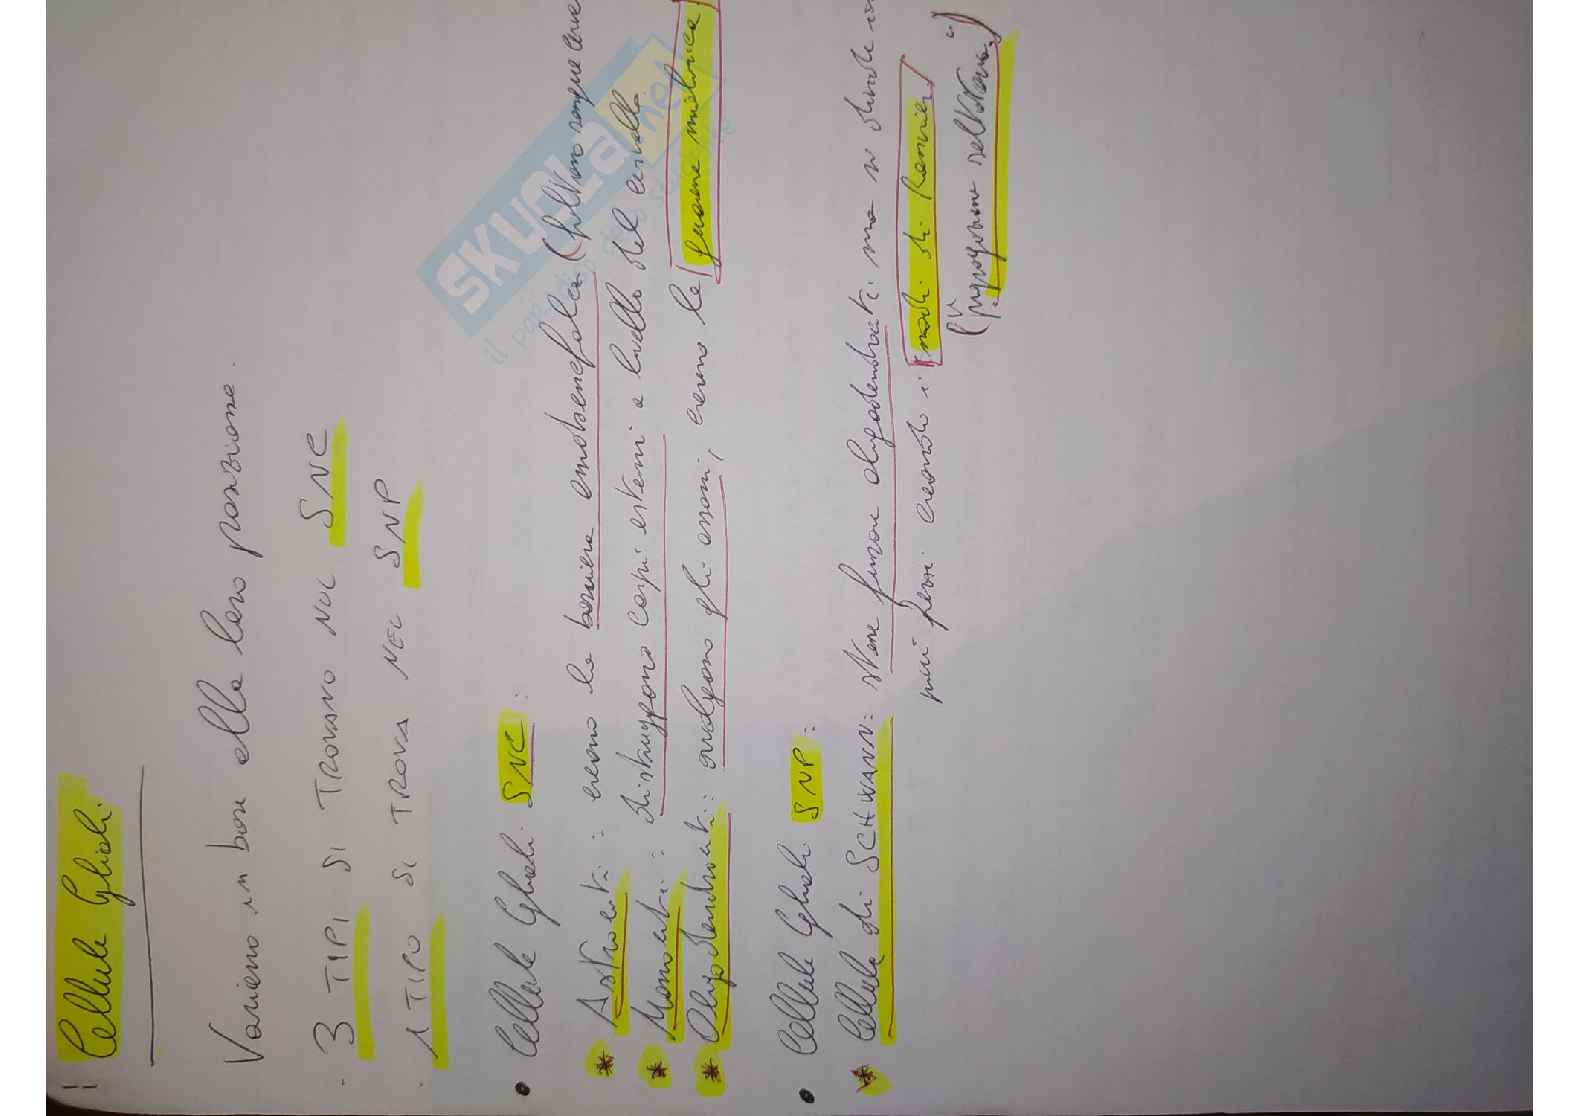 Cellule Gliali
Variano in base alla loro posizione.
3 TIPI SI TROVANO NEL SNC
1 TIPO SI TROVA NEL SNP
• Cellule Gliali SNC:
* Astrociti: creano la barriera ematoencefalica (filtrano sangue
* Monociti: distruggono corpi esterni a livello del cervello
* Oligodendrociti: avvolgono gli assoni, creano la guaina mielinica
• Cellule Gliali SNP:
* Cellule di SCHWANN: stessa funzione oligodendrociti ma si divide in
più pezzi creando i nodi di Ranvier
(propagano saltatoria)
SKUOLA.net
il paradiso dello studente